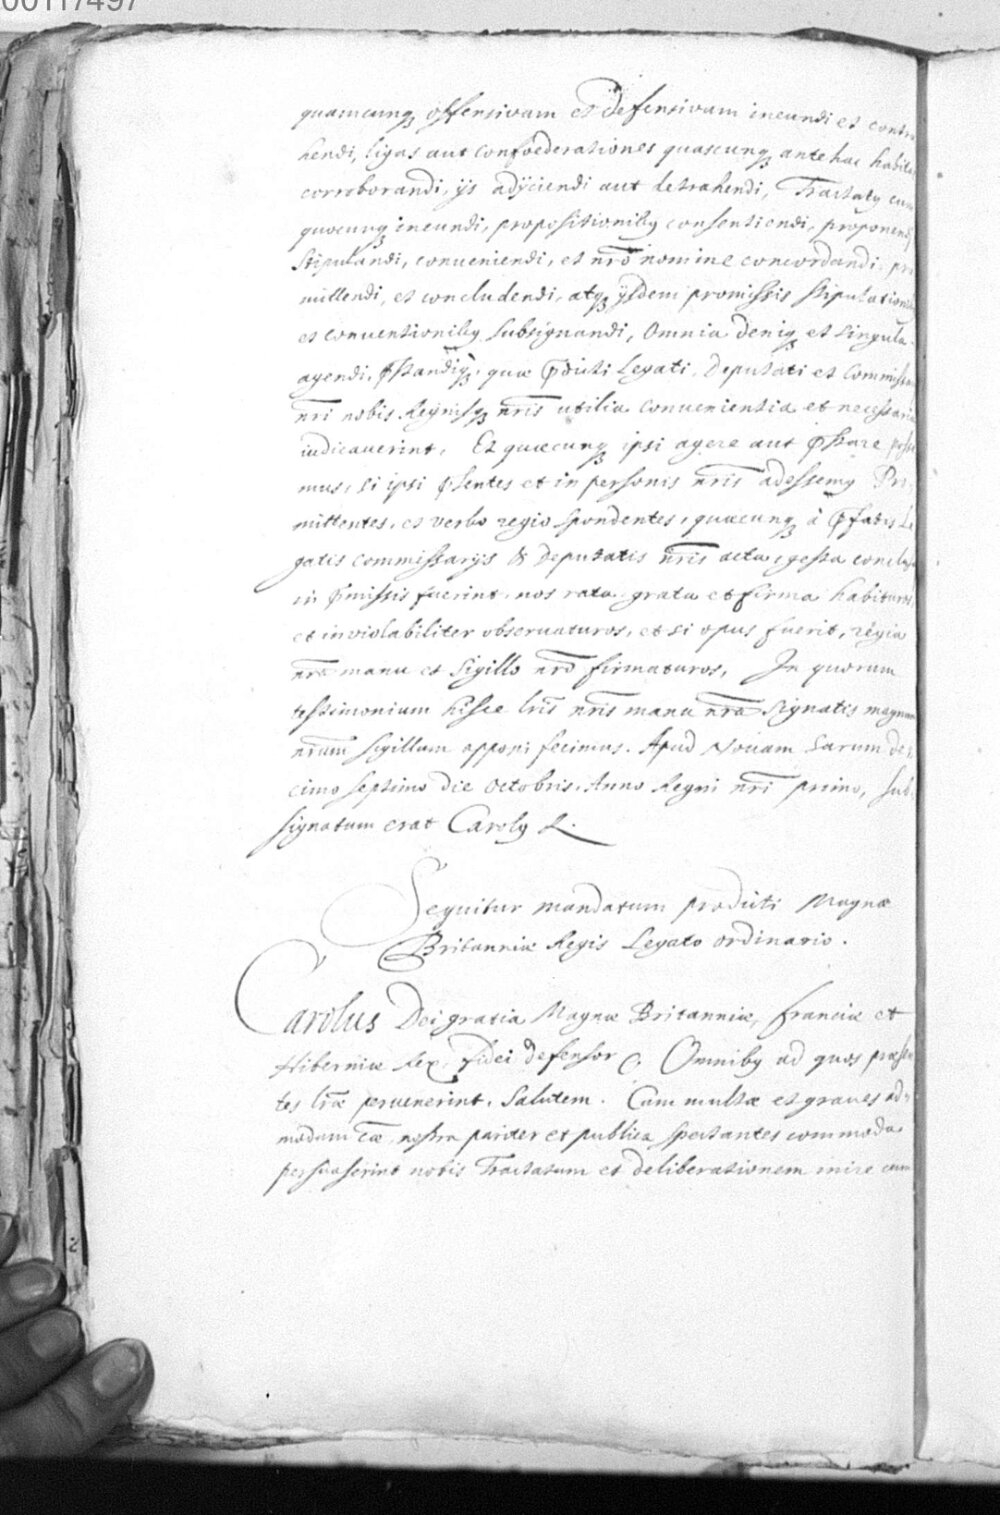 00117497
quamcunq offensivam et defensivam ineundi et contra
hendi, ligas aut confoederationes quascunq ante hac habitas
corroborandi, ijs adijciendi aut detrahendi, Tractaty cum
quocunq ineundi, propositioniby consentiendi, proponendi
stipulandi, conueniendi, et nrō nomine concordandi, pro
mittendi, et concludendi, atq ijsdem promissis stipulationib
et conuentioniby subsignandi, Omnia deniq et singula
agendi, pstandiq, quae pdicti Legati, Deputati et Commissarii
nri nobis Regnisq nris utilia conuenientia et necessaria
iudicauerint, Et quaecunq ipsi agere aut pstare posse
mus, si ipsi psentes et in personis nris adessemy Pro
mittentes, et verbo regio spondentes, quaecunq à pfatis Le
gatis commissarijs & deputatis nris acta, gesta conclusa
in pmissis fuerint, nos rata, grata et firma habituros
et inviolabiliter obseruaturos, et si opus fuerit, regia
nra manu et sigillo nrō firmaturos, In quorum
testimonium hisce lris nris manu nra signatis magnum
nrum sigillum apponi fecimus. Apud Novam Sarum de
cimo septimo die Octobris, Anno Regni nri primo, sub
signatum erat Caroly R.
Sequitur mandatum praedicti Magnae
Britanniae Regis Legato ordinario.
Carolus Dei gratia Magnae Britanniae, franciae et
Hiberniae Rex, fidei defensor &c. Omniby ad quos praesen
tes lrae peruenerint, Salutem. Cum multae et graues ad
modum cae, nostra pariter et publica spectantes commoda
persuaserint nobis Tractatum et deliberationem inire cum